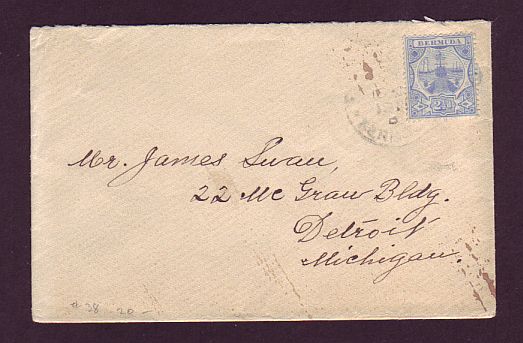 BERMUDA
2½d
Mr. James Swan,
22 Mc Graw Bldg.
Detroit
Michigan.
# 38 20 -